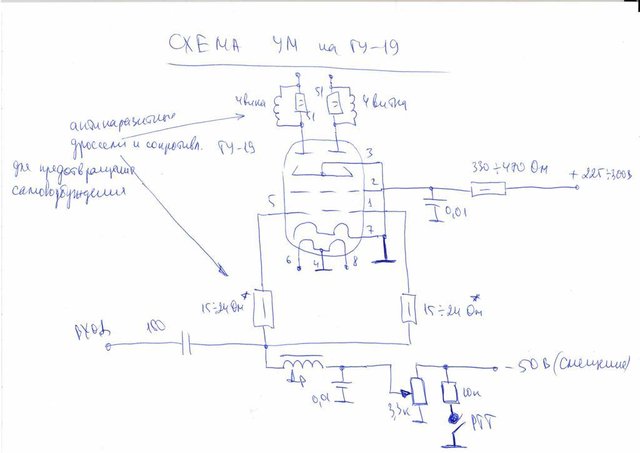 СХЕМА УМ на ГУ-19
4 витка
51
51
4 витка
антипаразитные
дроссели и сопротивл.
ГУ-19
для предотвращения
самовозбуждения
3
330÷470 Ом
2
+225÷300В
0,01
5
1
7
6
4
8
15÷24 Ом*
15÷24 Ом*
ВХОД
100
-50В (смещение)
Др
0,01
3,3к
10к
РТТ